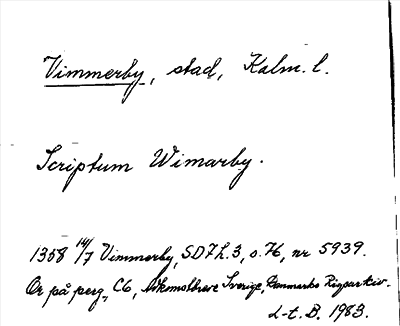 Vimmerby, stad, Kalm. l.
Scriptum Wimarby.
1358 14/7 Vimmerby, SD 7 h. 3, s. 76, nr 5939.
Or på perg., C6, Sverige, Danmarks Rigsarkiv.
L-t. B. 1983.